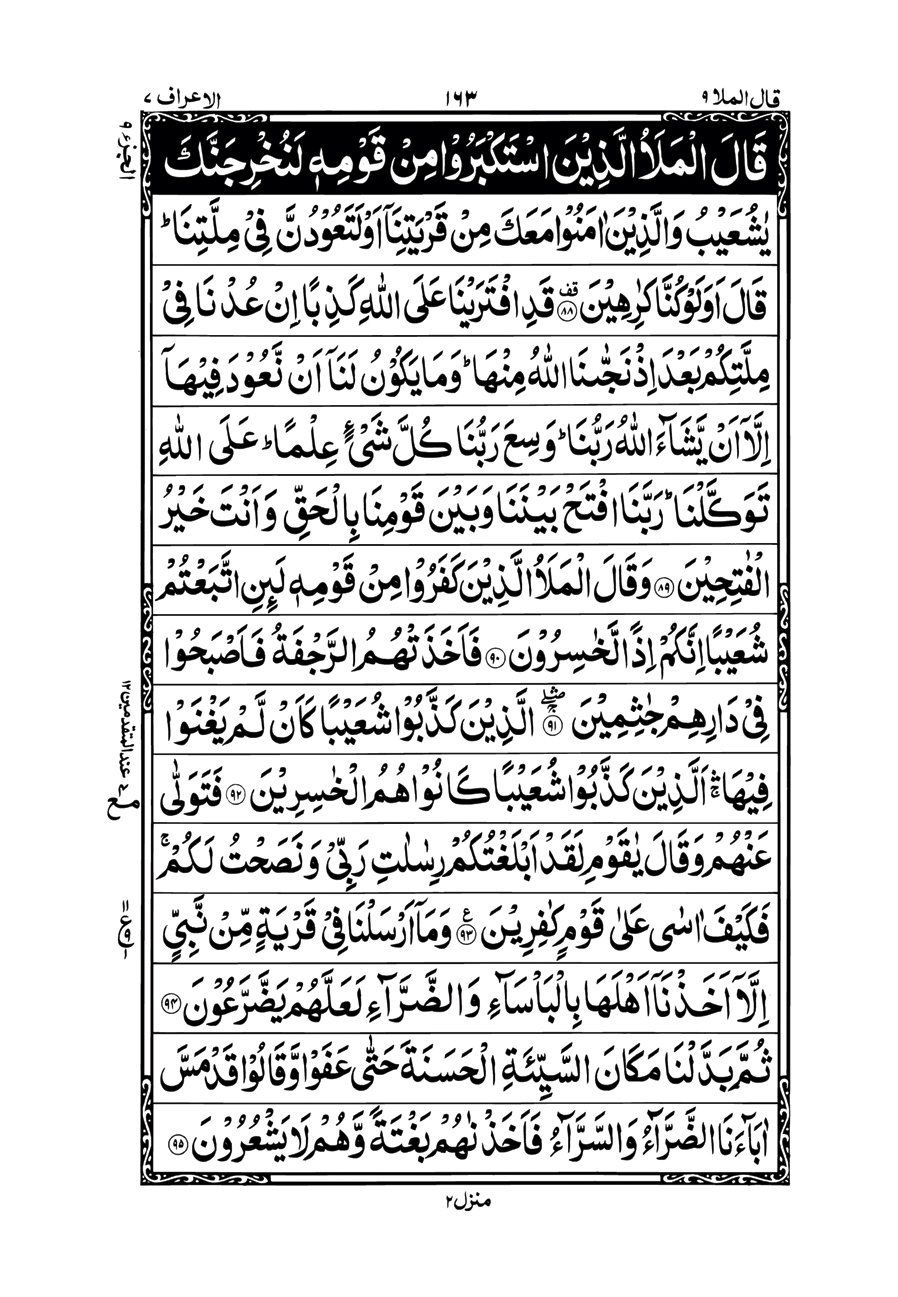 قال الملا ٩
١٦٣
الاعراف ٧
الجزء ٩
قَالَ الْمَلَاُ الَّذِيْنَ اسْتَكْبَرُوْا مِنْ قَوْمِهٖ لَنُخْرِجَنَّكَ
يٰشُعَيْبُ وَالَّذِيْنَ اٰمَنُوْا مَعَكَ مِنْ قَرْيَتِنَاۤ اَوْ لَتَعُوْدُنَّ فِيْ مِلَّتِنَا ؕ
قَالَ اَوَلَوْ كُنَّا كٰرِهِيْنَ ۟قف ﴿٨٨﴾ قَدِ افْتَرَيْنَا عَلَى اللّٰهِ كَذِبًا اِنْ عُدْنَا فِيْ
مِلَّتِكُمْ بَعْدَ اِذْ نَجّٰىنَا اللّٰهُ مِنْهَا ؕ وَمَا يَكُوْنُ لَنَاۤ اَنْ نَّعُوْدَ فِيْهَاۤ
اِلَّاۤ اَنْ يَّشَآءَ اللّٰهُ رَبُّنَا ؕ وَسِعَ رَبُّنَا كُلَّ شَيْءٍ عِلْمًا ؕ عَلَى اللّٰهِ
تَوَكَّلْنَا ؕ رَبَّنَا افْتَحْ بَيْنَنَا وَبَيْنَ قَوْمِنَا بِالْحَقِّ وَاَنْتَ خَيْرُ
الْفٰتِحِيْنَ ﴿٨٩﴾ وَقَالَ الْمَلَاُ الَّذِيْنَ كَفَرُوْا مِنْ قَوْمِهٖ لَىِٕنِ اتَّبَعْتُمْ
شُعَيْبًا اِنَّكُمْ اِذًا لَّخٰسِرُوْنَ ﴿٩٠﴾ فَاَخَذَتْهُمُ الرَّجْفَةُ فَاَصْبَحُوْا
فِيْ دَارِهِمْ جٰثِمِيْنَ ﴿٩١﴾ الَّذِيْنَ كَذَّبُوْا شُعَيْبًا كَاَنْ لَّمْ يَغْنَوْا
فِيْهَا ۛۚ اَلَّذِيْنَ كَذَّبُوْا شُعَيْبًا كَانُوْا هُمُ الْخٰسِرِيْنَ ﴿٩٢﴾ فَتَوَلّٰى
عَنْهُمْ وَقَالَ يٰقَوْمِ لَقَدْ اَبْلَغْتُكُمْ رِسٰلٰتِ رَبِّيْ وَنَصَحْتُ لَكُمْ ۚ
فَكَيْفَ اٰسٰى عَلٰى قَوْمٍ كٰفِرِيْنَ ﴿٩٣﴾ع وَمَاۤ اَرْسَلْنَا فِيْ قَرْيَةٍ مِّنْ نَّبِيٍّ
اِلَّاۤ اَخَذْنَاۤ اَهْلَهَا بِالْبَاْسَآءِ وَالضَّرَّآءِ لَعَلَّهُمْ يَضَّرَّعُوْنَ ﴿٩٤﴾
ثُمَّ بَدَّلْنَا مَكَانَ السَّيِّئَةِ الْحَسَنَةَ حَتّٰى عَفَوْا وَّقَالُوْا قَدْ مَسَّ
اٰبَآءَنَا الضَّرَّآءُ وَالسَّرَّآءُ فَاَخَذْنٰهُمْ بَغْتَةً وَّهُمْ لَا يَشْعُرُوْنَ ﴿٩٥﴾
عند المتقدمين ١٢
منزل ٢